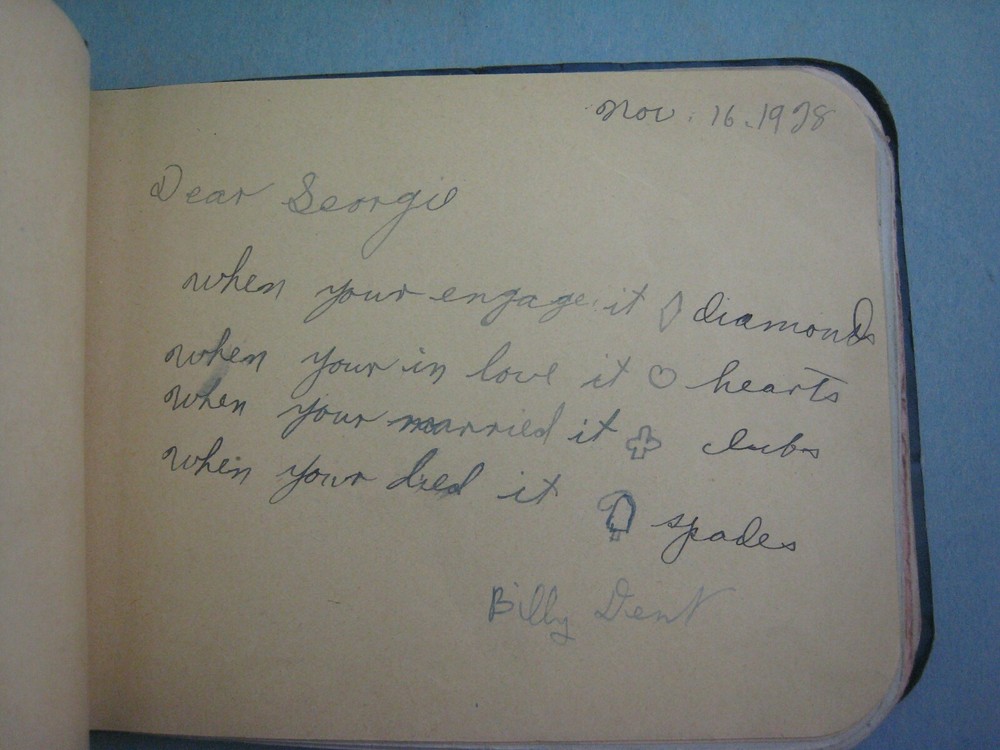 Nov. 16. 1928
Dear Georgie
when your engage it diamonds
when your in love it hearts
when your married it clubs
when your died it spades
Billy Dent